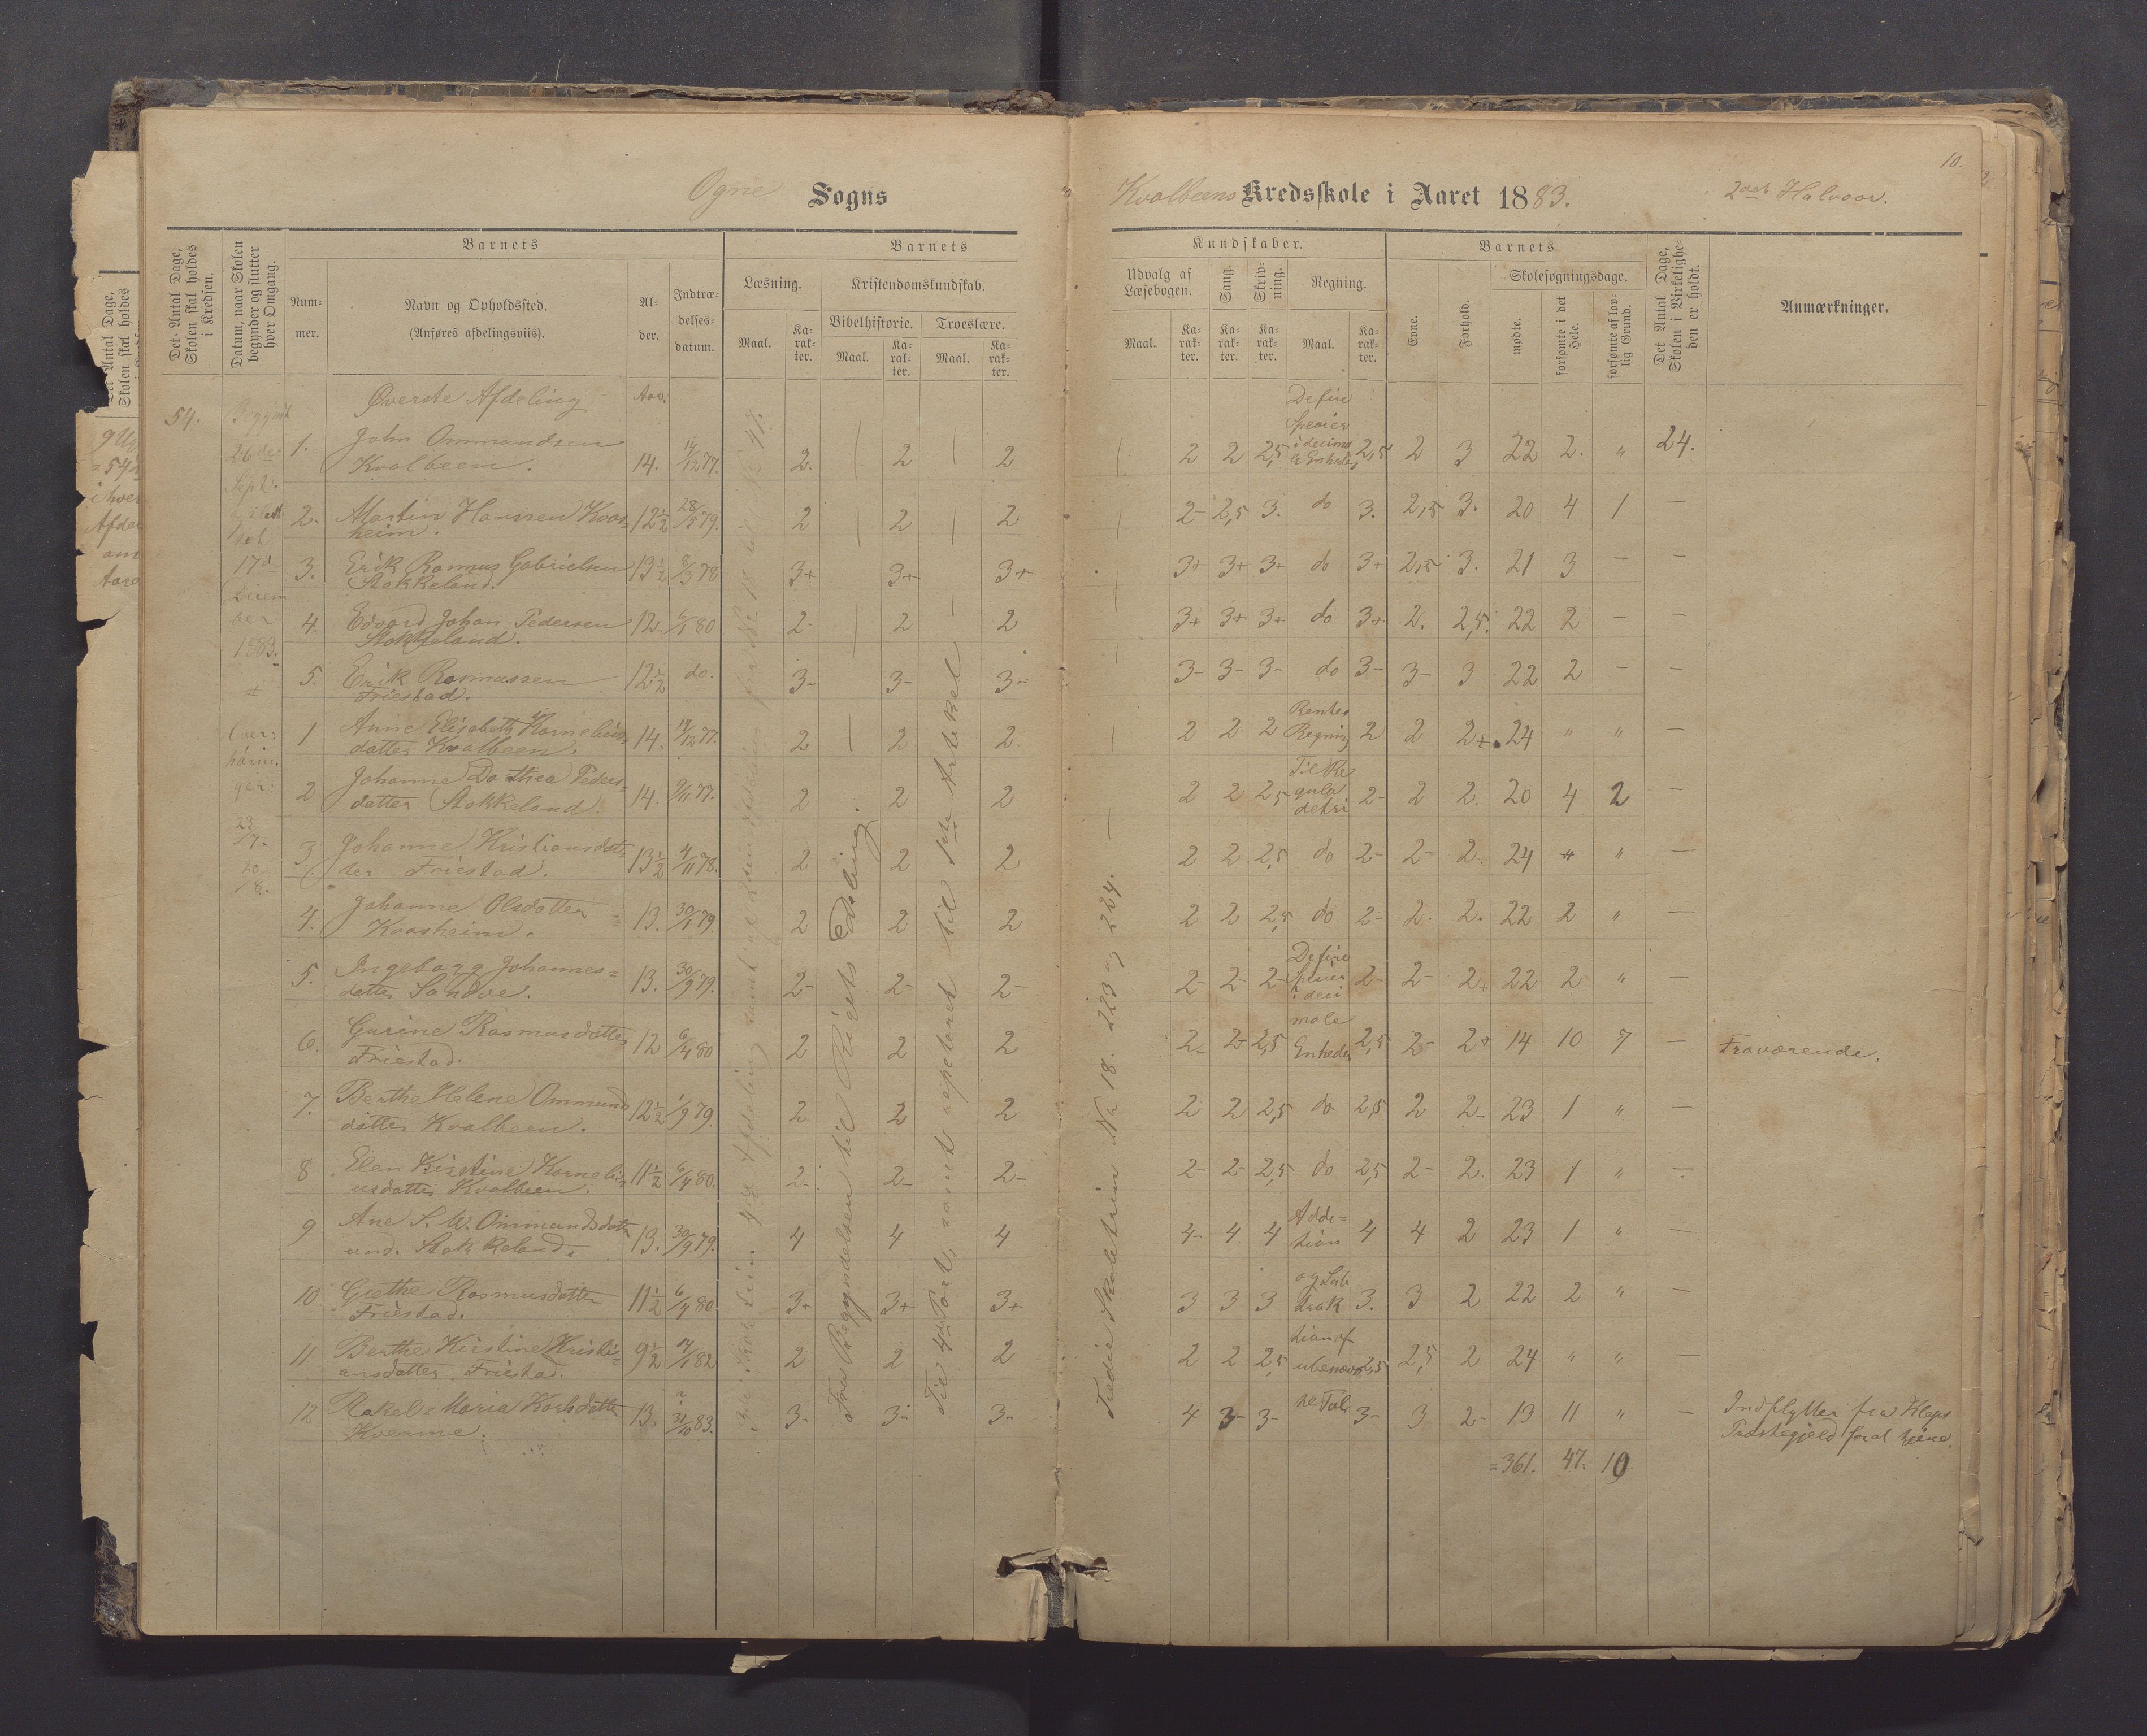 10.
Ogne Sogns Kvalbeens Kredsskole i Aaret 1883. 2det Halvaar.
Det Antal Dage, Skolen skal holdes i Kredsen.
Datum, naar Skolen begynder og slutter hver Omgang.
Barnets
Num-mer.
Navn og Opholdssted.
(Anføres afdelingsviis).
Al-der.
Indtræ-delses-datum.
Barnets
Læsning.
Maal.
Ka-rak-ter.
Kristendomskundskab.
Bibelhistorie.
Troeslære.
Maal.
Ka-rak-ter.
Maal.
Ka-rak-ter.
Kundskaber.
Udvalg af Læsebogen.
Sang.
Skriv-ning.
Regning.
Maal.
Ka-rak-ter.
Ka-rak-ter.
Ka-rak-ter.
Maal.
Ka-rak-ter.
Barnets
Evne.
Forhold.
Skolesøgningsdage.
mødte.
forsømte i det Hele.
forsømte af lov-lig Grund.
Det Antal Dage, Skolen i Virkelighe-den er holdt.
Anmærkninger.
54.
26de
Sept.
17d
1883.
Over:
hørin:
ger:
Øverste Afdeling. Aar.
1. John Ommundsen
Kvalbeen. 14. 14/12 77. 2. 2 2 2 2 2,5 2,5 2 3 22 2. " 24.
Defire
Specier
i decima
le Enheder
2. Martin Hanssen Kvas=
heim. 12½ 28/5 79. 2 2 2 2- 2,5 3. do 3. 2,5 3. 20 4 1 —
3. Erik Rasmus Gabrielsen
Stokkeland. 13½ 8/3 78 3+ 3+ 3+ 3+ 3+ 3+ do 3+ 2,5 3. 21 3 — —
4. Edvard Johan Pedersen
Stokkeland. 12. 6/1 80 2- 2 2 3+ 3+ 3+ do 3+ 2. 2,5. 22 2 — —
5. Erik Rasmussen
Friestad. 12½ do. 3- 3- 3- 3- 3- 3- do 3- 3- 3 22 2 — —
1 Anne Elisabeth Kornelius
datter Kvalbeen. 14. 14/12 77. 2 2 2. 2 2 2 Rentes
Regning 2 2 2+ 24 " "
2 Johanne Dorthea Peders=
datter Stokkeland. 14. 9/11 77. 2 2 2 2 2 2,5 Til Re
gula
detri 2- 2 2. 20 4 2 —
3 Johanne Kristiansdat=
ter Friestad. 13½ 4/11 78. 2 2 2 2 2 2,5 do 2- 2- 2. 24 " " —
4. Johanne Olsdatter
Kvasheim. 13. 30/1 79. 2 2 2 2 2 2,5 do 2- 2. 2. 22 2 " —
5. Ingeborg Johannes=
datter Sandve. 13. 30/9 79. 2- 2- 2- 2- 2- 2- 2- 2- 2+ 22 2 " —
Defire
Specier
i deci
male
Enheder
6. Gurine Rasmusdatter
Friestad. 12 6/4 80 2 2 2 2- 2- 2,5 2,5 2- 2+ 14 10 7 — Fraværende.
7. Berthe Helene Ommunds
datter Kvalbeen. 12½ 1/9 79. 2 2 2 2 2 2,5 do 2,5 2 2- 23 1 " —
8 Elen Kirstine Korneli=
usdatter Kvalbeen. 11½ 6/4 80. 2- 2- 2- 2- 2- 2,5 do 2,5 2- 2. 23 1 " —
9 Ane S. W. Ommundsdatter
und. Stokkeland. 13. 30/9 79. 4 4 4 4- 4 4 Addi=
tion 4 4 2 23 1 " —
10 Grethe Rasmusdatter
Friestad. 11½ 6/4 80 3+ 3+ 3+ 3 3 3 og Sub
trak 3. 3 2 22 2 " —
11 Berthe Kirstine Kristi=
ansdatter Friestad. 9½ 14/1 82 2 2 2 2 2 2,5 tion af
ubenævn 2,5 2,5 2 24 " " —
12 Rakel Maria Karlsdatter
Kvernne. 13. 31/10 83. 3- 3- 3- 4 3- 3- ne Tal. 3- 3 2- 13 11 " — Indflytter fra Kleps
Præstegjeld forat tjene.
= 361. 47. 10
Fra Begyndelsen til Rigets Deling.
Til 4de Part, samt repeteret til 1ste Artikel
Tredie Skoletrin No 18. 223 og 224.